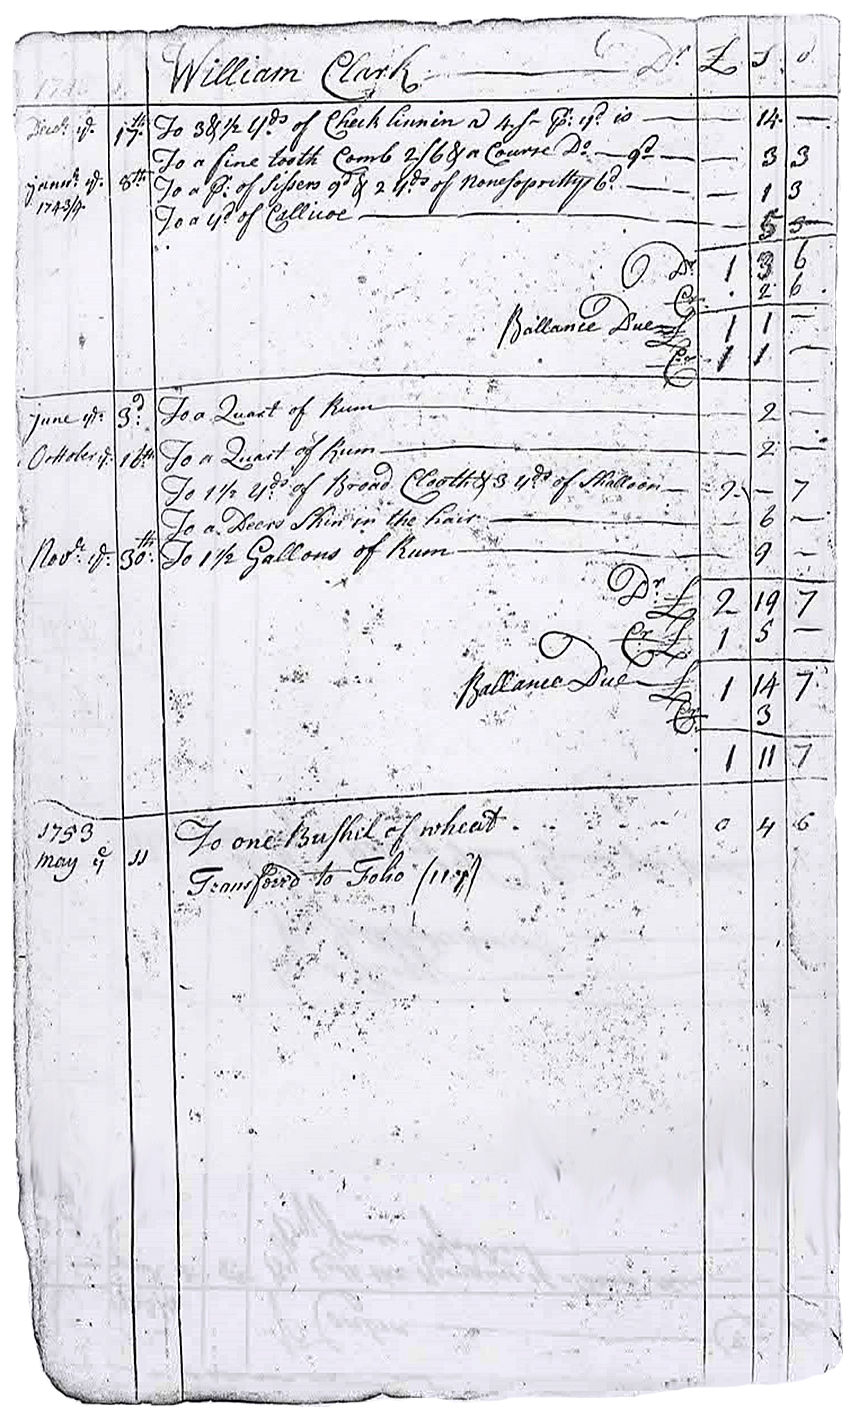 William Clark — Dr £ S d
Decr ye 17th To 3 & 1/2 Yds of Check linnin a 4s/- pr yd is — 14 —
To a fine tooth Comb 2s/6 & a Course Do — 9d — 3 3
Jannr ye 8th To a pr of Sissers 9d & 2 Yds of Nonesopritty 6d — 1 3
1743/4 To a yd of Callicoe — 5 —
Dr 1 3 6
Cr . 2 6
Ballance Due £ 1 1 —
Cr 1 1 —
June ye 3d To a Quart of Rum — 2 —
Octtober ye 16th To a Quart of Rum — 2 —
To 1 1/2 Yds of Broad Clooth & 3 Yds of Shalloon — 2 — 7
To a Deers Skin in the hair — 6 —
Novr ye 30th To 1 1/2 Gallons of Rum — 9 —
Dr £ 2 19 7
Cr £ 1 5 —
Ballance Due £ 1 14 7
Cr 3
1 11 7
1753
May ye 11 To one Bushel of wheat . 0 4 6
Transferrd to Folio